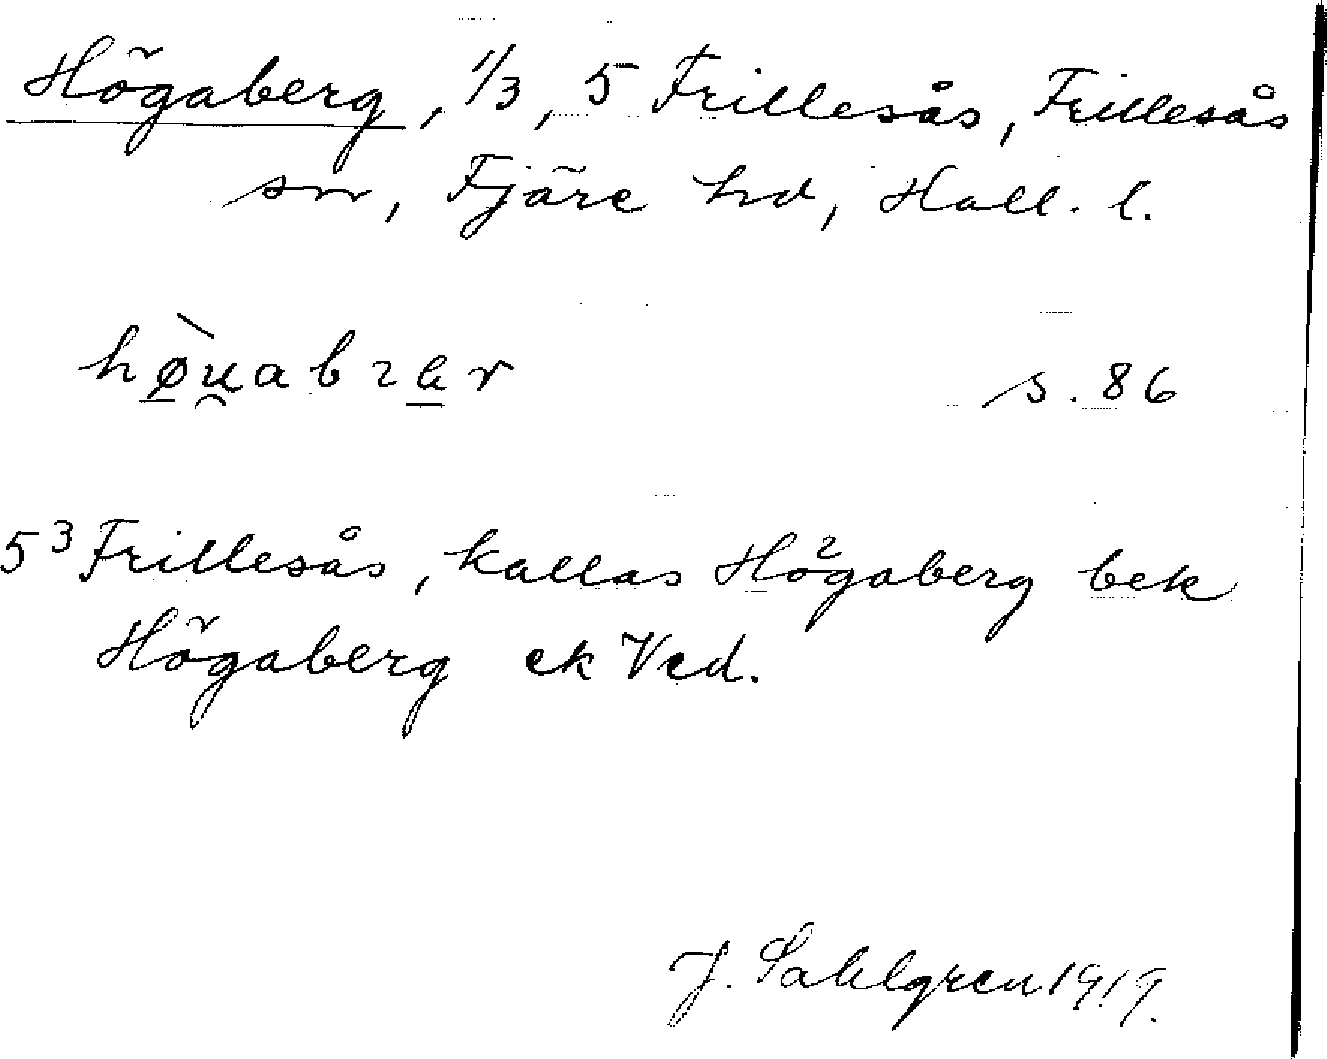 Högaberg, 1/3, 5 Frillesås, Frillesås
sn, Fjäre hd, Hall. l.
s. 86
5³ Frillesås, kallas Högaberg bek
Högaberg ek Ved.
J. Sahlgren 1919.